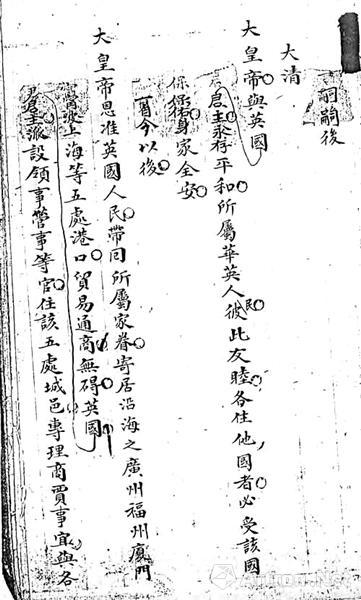 嗣後
大清
大皇帝與英國
君主永存平和所屬華英人民彼此友睦各住他國者必受該國
保佑身家全安
自今以後
大皇帝恩准英國人民帶同所屬家眷寄居沿海之廣州福州廈門
寧波上海等五處港口貿易通商無礙英國
君主派設領事管事等官住該五處城邑專理商賈事宜與各